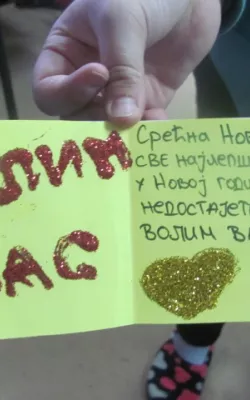 ЛИМ
АС
Срећна Нов
СВЕ НАЈЛЕПШ
У НОВОЈ ГОДИ
НЕДОСТАЈЕТ
ВОЛИМ ВА